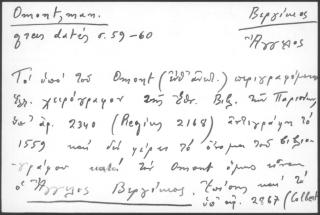 Omont, man. Βεργίκιος
grecs datés σ. 59-60 Ἄγγελος
Τὸ ὑπὸ τοῦ Omont (ἔνθ' ἀνωτ.) περιγραφόμενον
ἑλ. χειρόγραφον τῆς Ἐθν. Βιβ. τῶν Παρισίων
ὑπ' ἀρ. 2340 (Regius 2168) ἀντιγράφη τὸ
1559 καὶ δὲν φέρει τὸ ὄνομα τοῦ βιβλιο-
γράφου κατὰ τὸν Omont ὅμως εἶναι
ὁ Ἄγγελος Βεργίκιος. Ἐπίσης καὶ τὸ
ὑπ' ἀρ. 2967 (Colbert